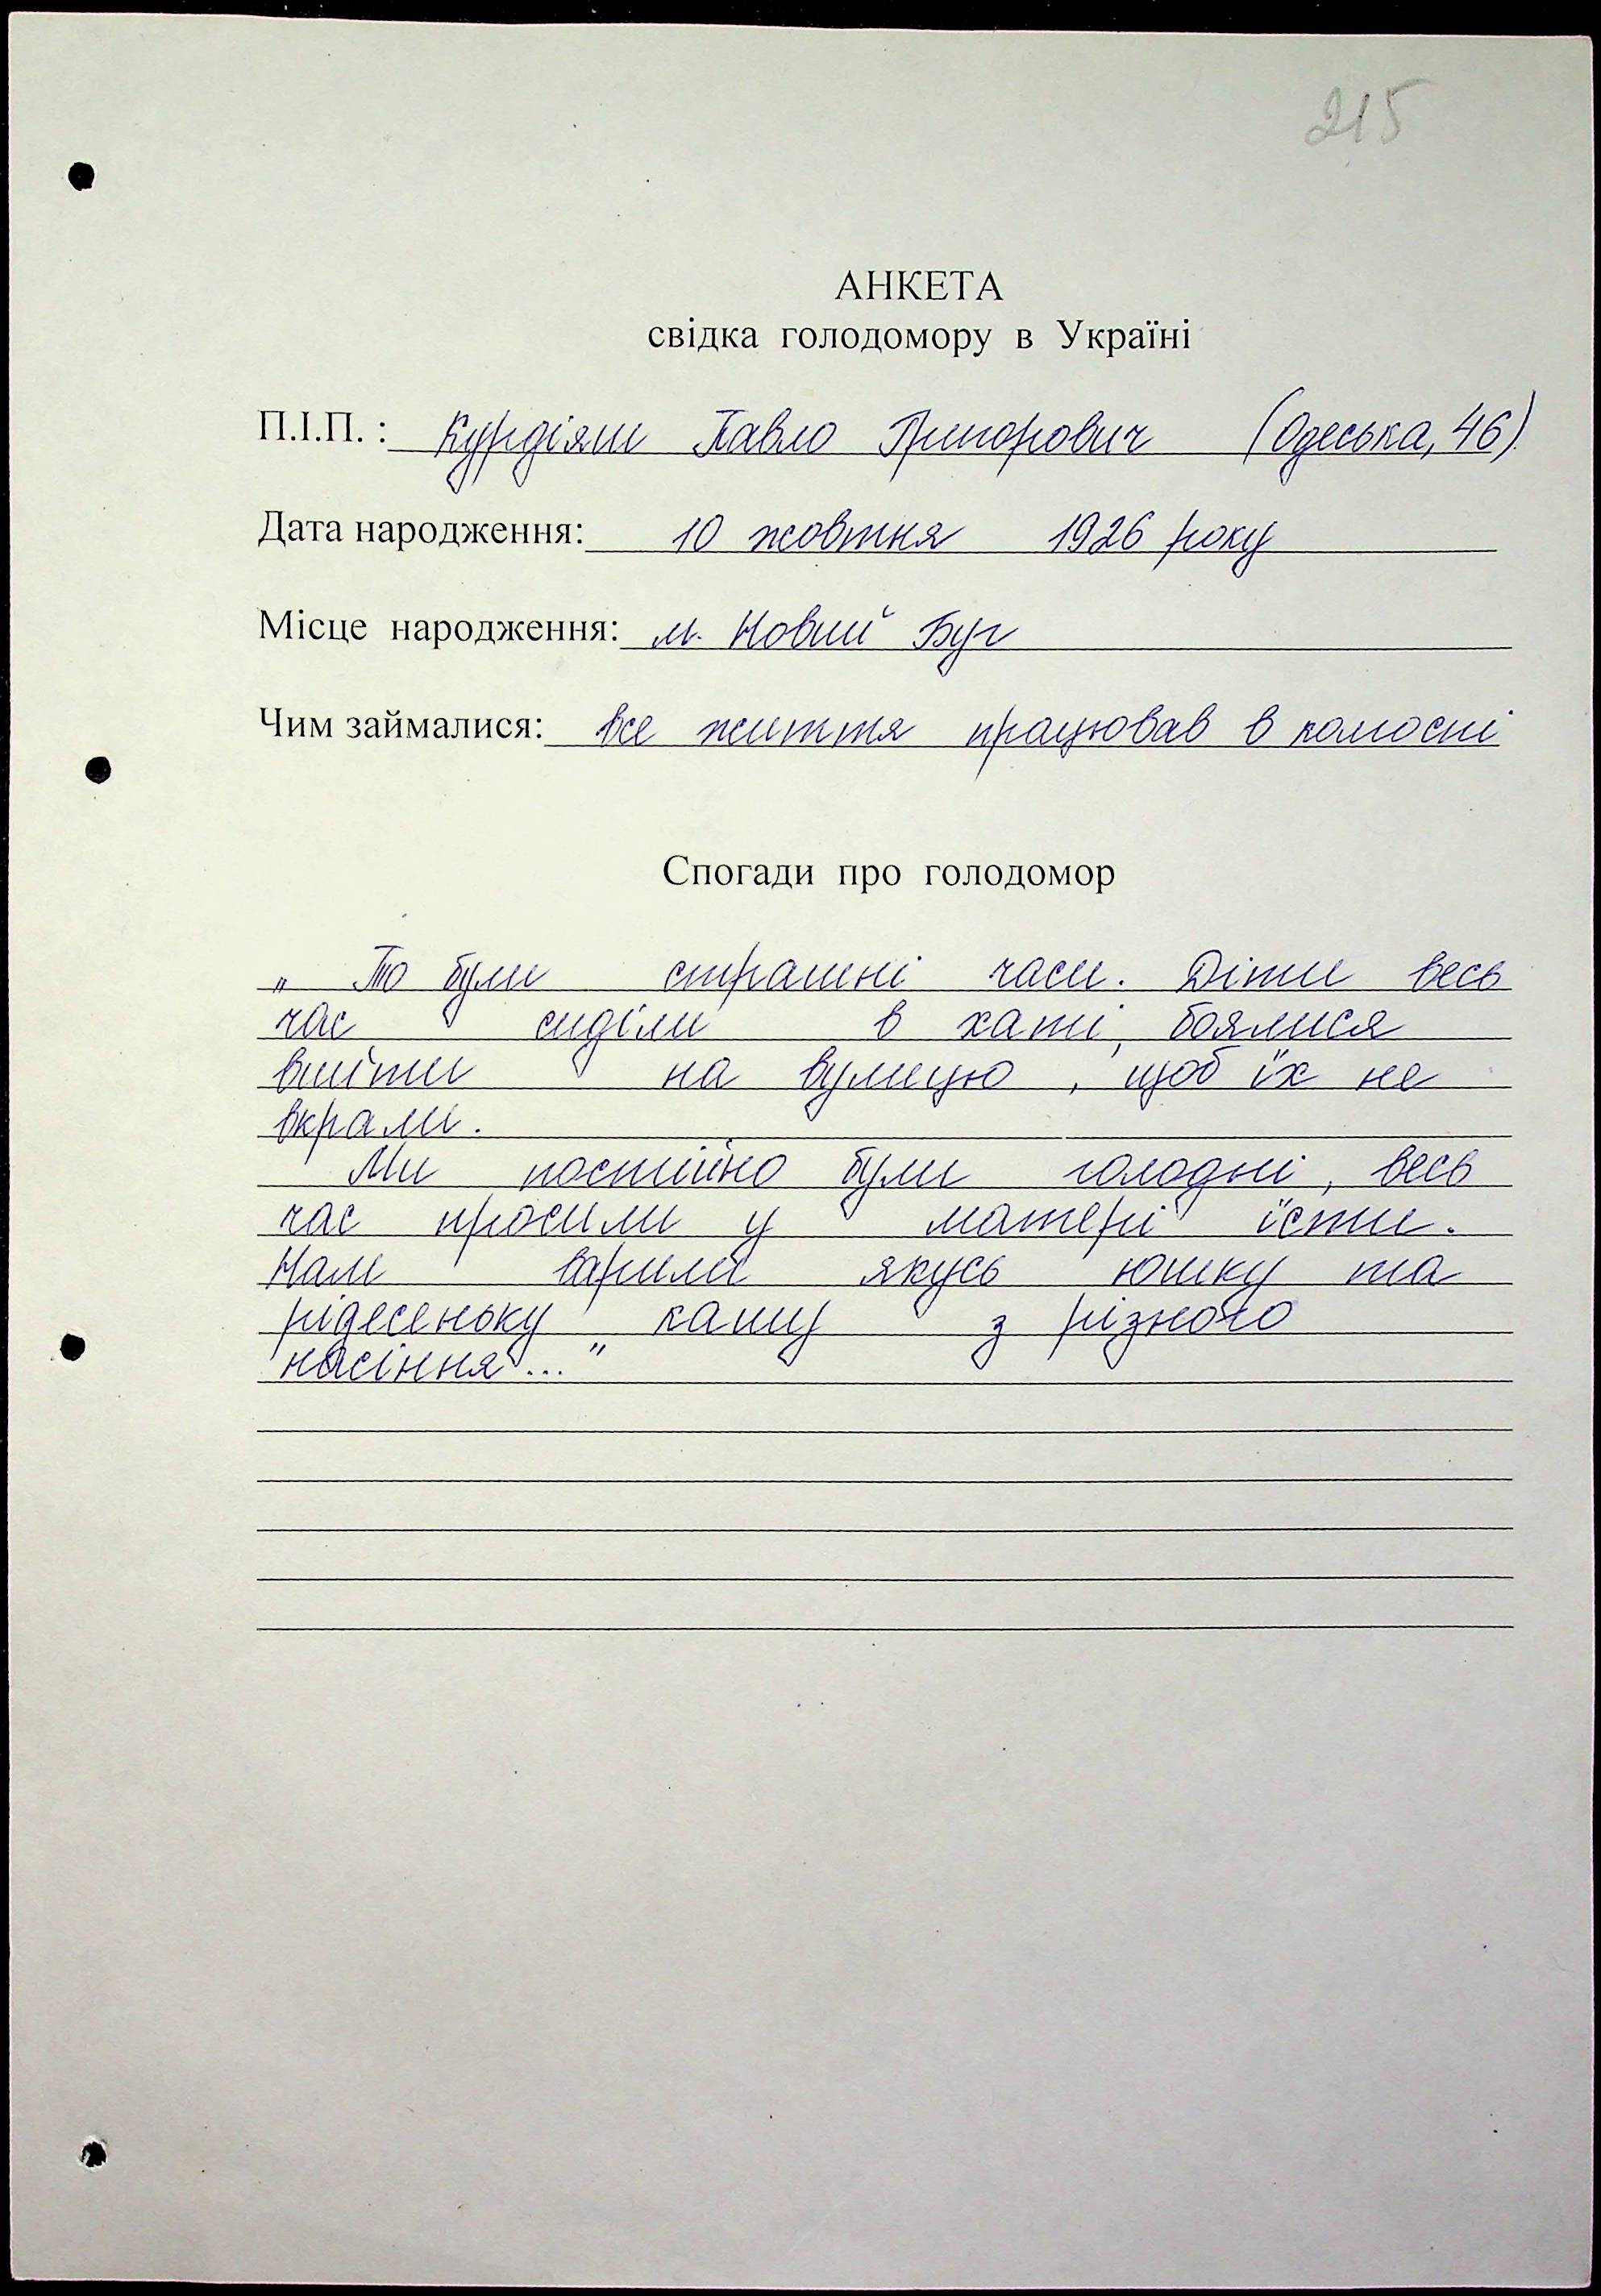 215
АНКЕТА
свідка голодомору в Україні
П.І.П. : Курдіяш Павло Григорович (Одеська, 46)
Дата народження: 10 жовтня 1926 року
Місце народження: м. Новий Буг
Чим займалися: все життя працював в колгоспі
Спогади про голодомор
„ То були страшні часи. Діти весь
час сиділи в хаті, боялися
вийти на вулицю, щоб їх не
вкрали.
Ми постійно були голодні, весь
час просили у матері їсти.
Нам варили якусь юшку та
рідесеньку кашу з різного
насіння..."